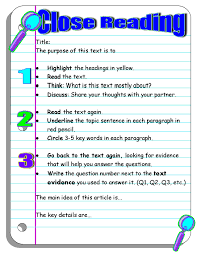 Close Reading
Title:
The purpose of this text is to
1
• Highlight the headings in yellow.
• Read the text.
• Think: What is this text mostly about?
• Discuss: Share your thoughts with your partner.
2
• Read the text again
• Underline the topic sentence in each paragraph in
red pencil.
• Circle 3-5 key words in each paragraph.
3
• Go back to the text again, looking for evidence
that will help you answer the questions.
• Write the question number next to the text
evidence you used to answer it. (Q1, Q2, Q3, etc.)
The main idea of this article is...
The key details are...